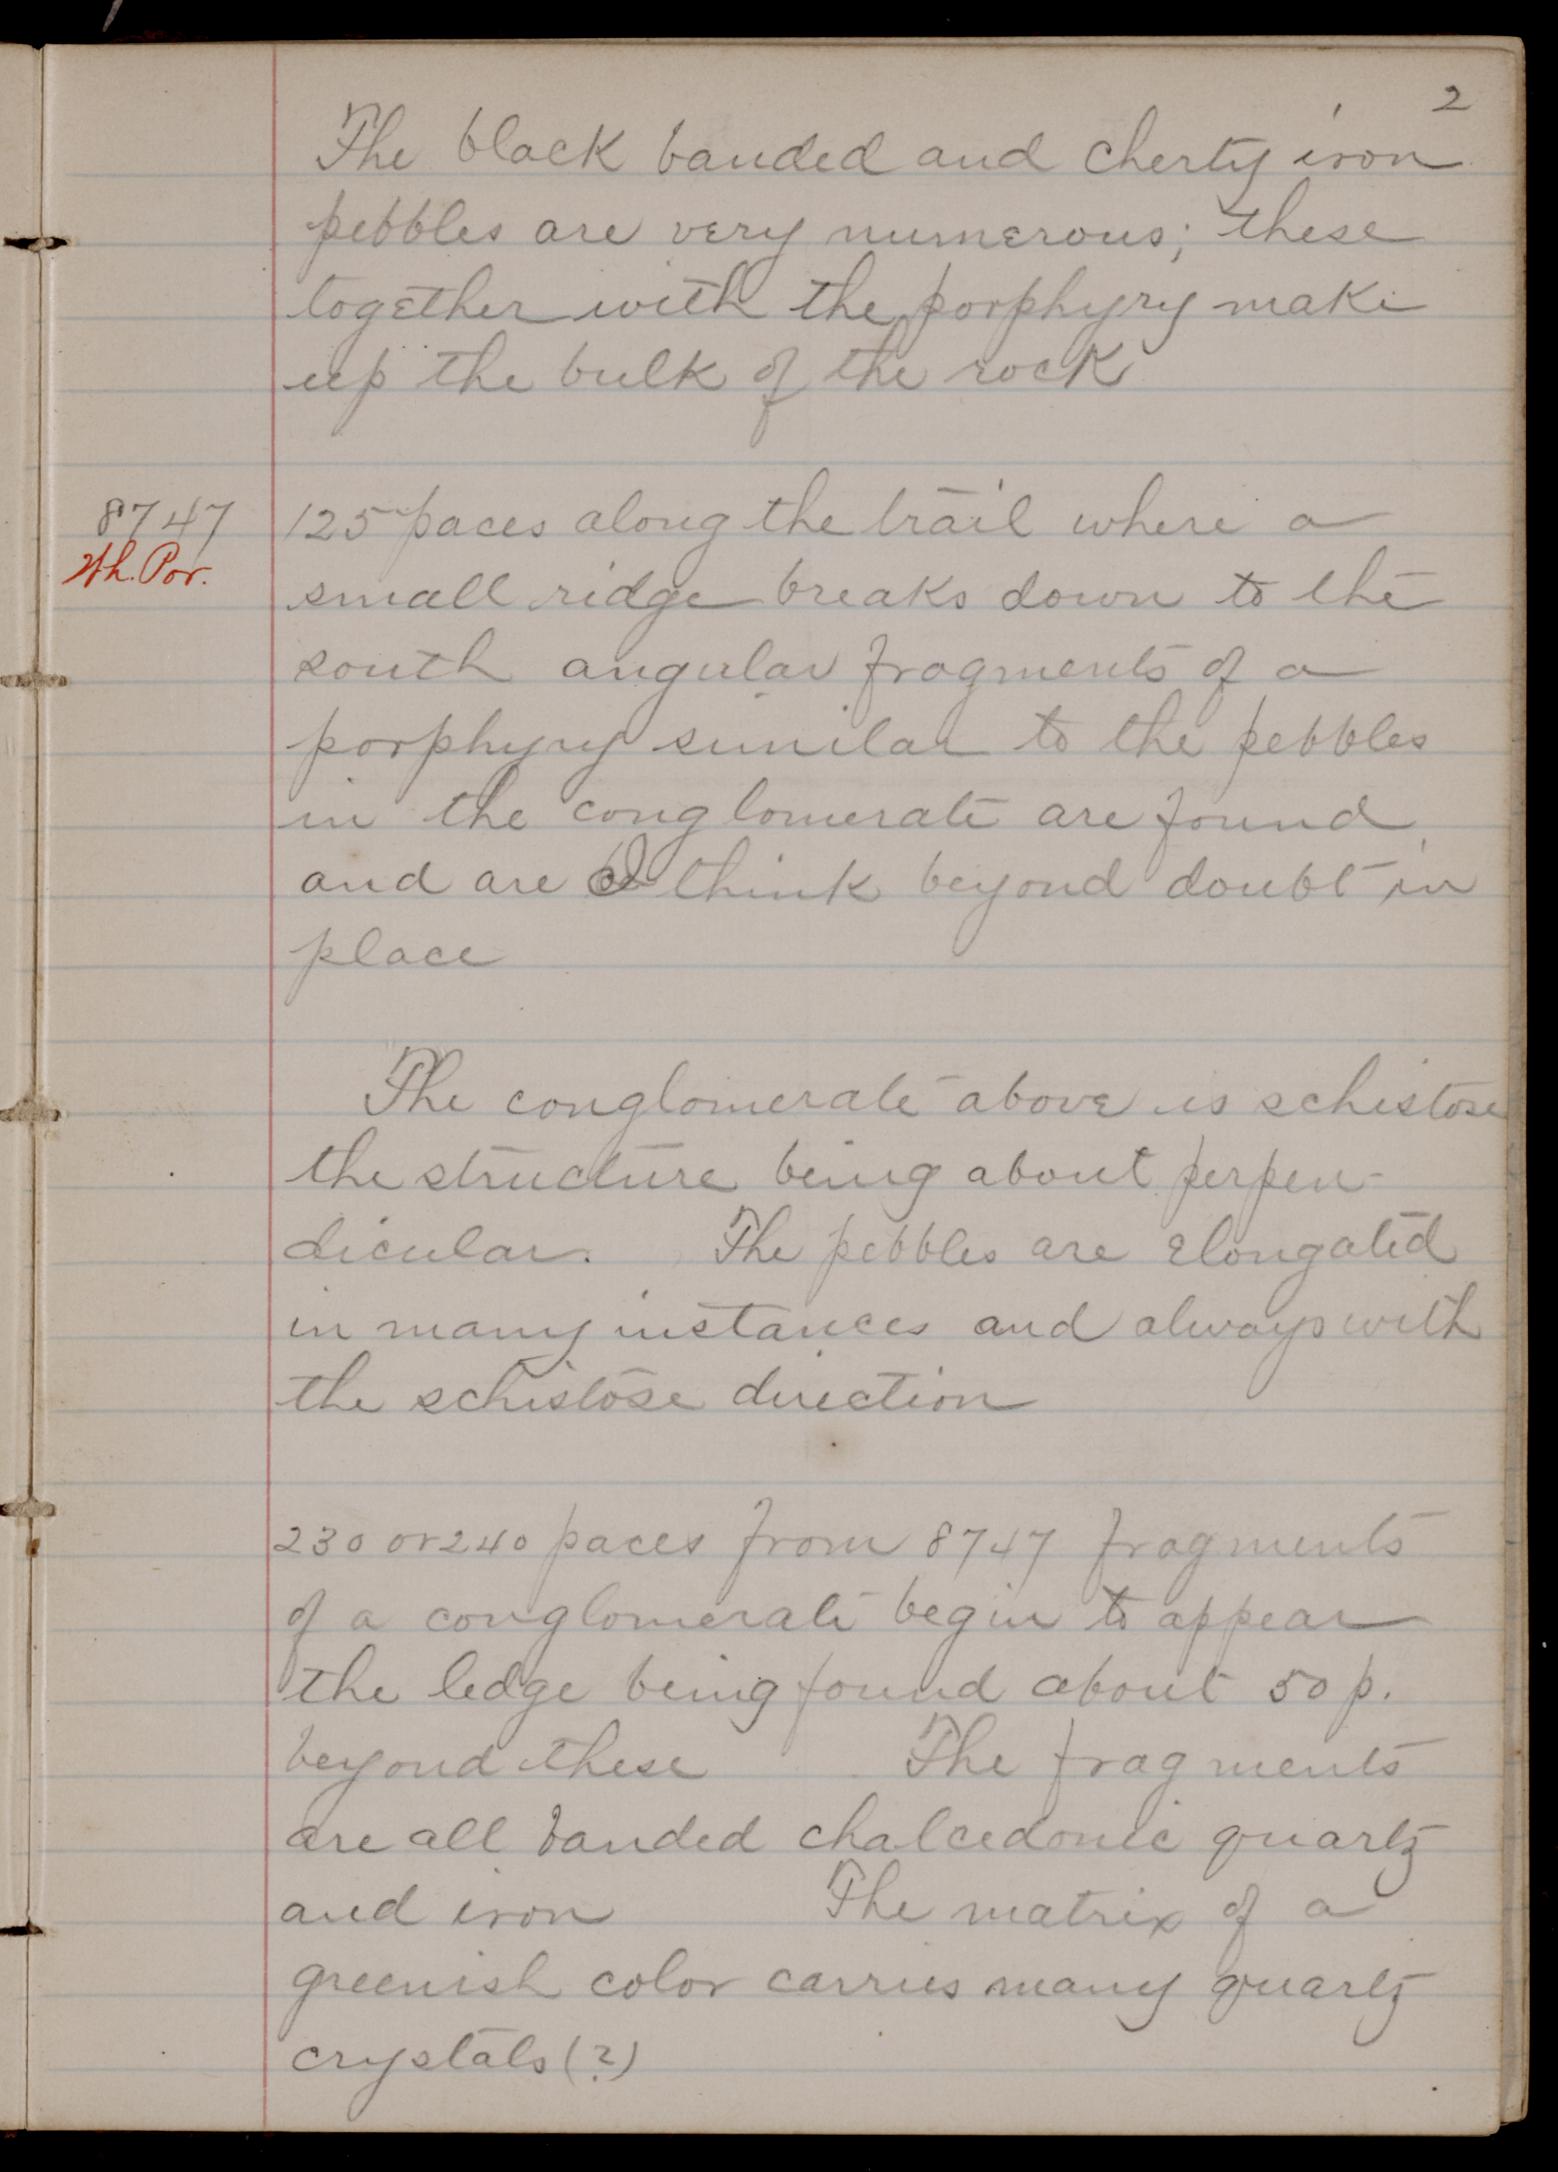 2
The black banded and cherty iron
pebbles are very numerous; these
together with the porphyry make
up the bulk of the rock
8747
Wh. Por.
125 paces along the trail where a
small ridge breaks down to the
south angular fragments of a
porphyry similar to the pebbles
in the conglomerate are found
and are I think beyond doubt in
place
The conglomerate above is schistose
the structure being about perpen-
dicular. The pebbles are elongated
in many instances and always with
the schistose direction
230 or 240 paces from 8747 fragments
of a conglomerate begin to appear
the ledge being found about 50 p.
beyond these The fragments
are all banded chalcedonic quartz
and iron The matrix of a
greenish color carries many quartz
crystals (?)